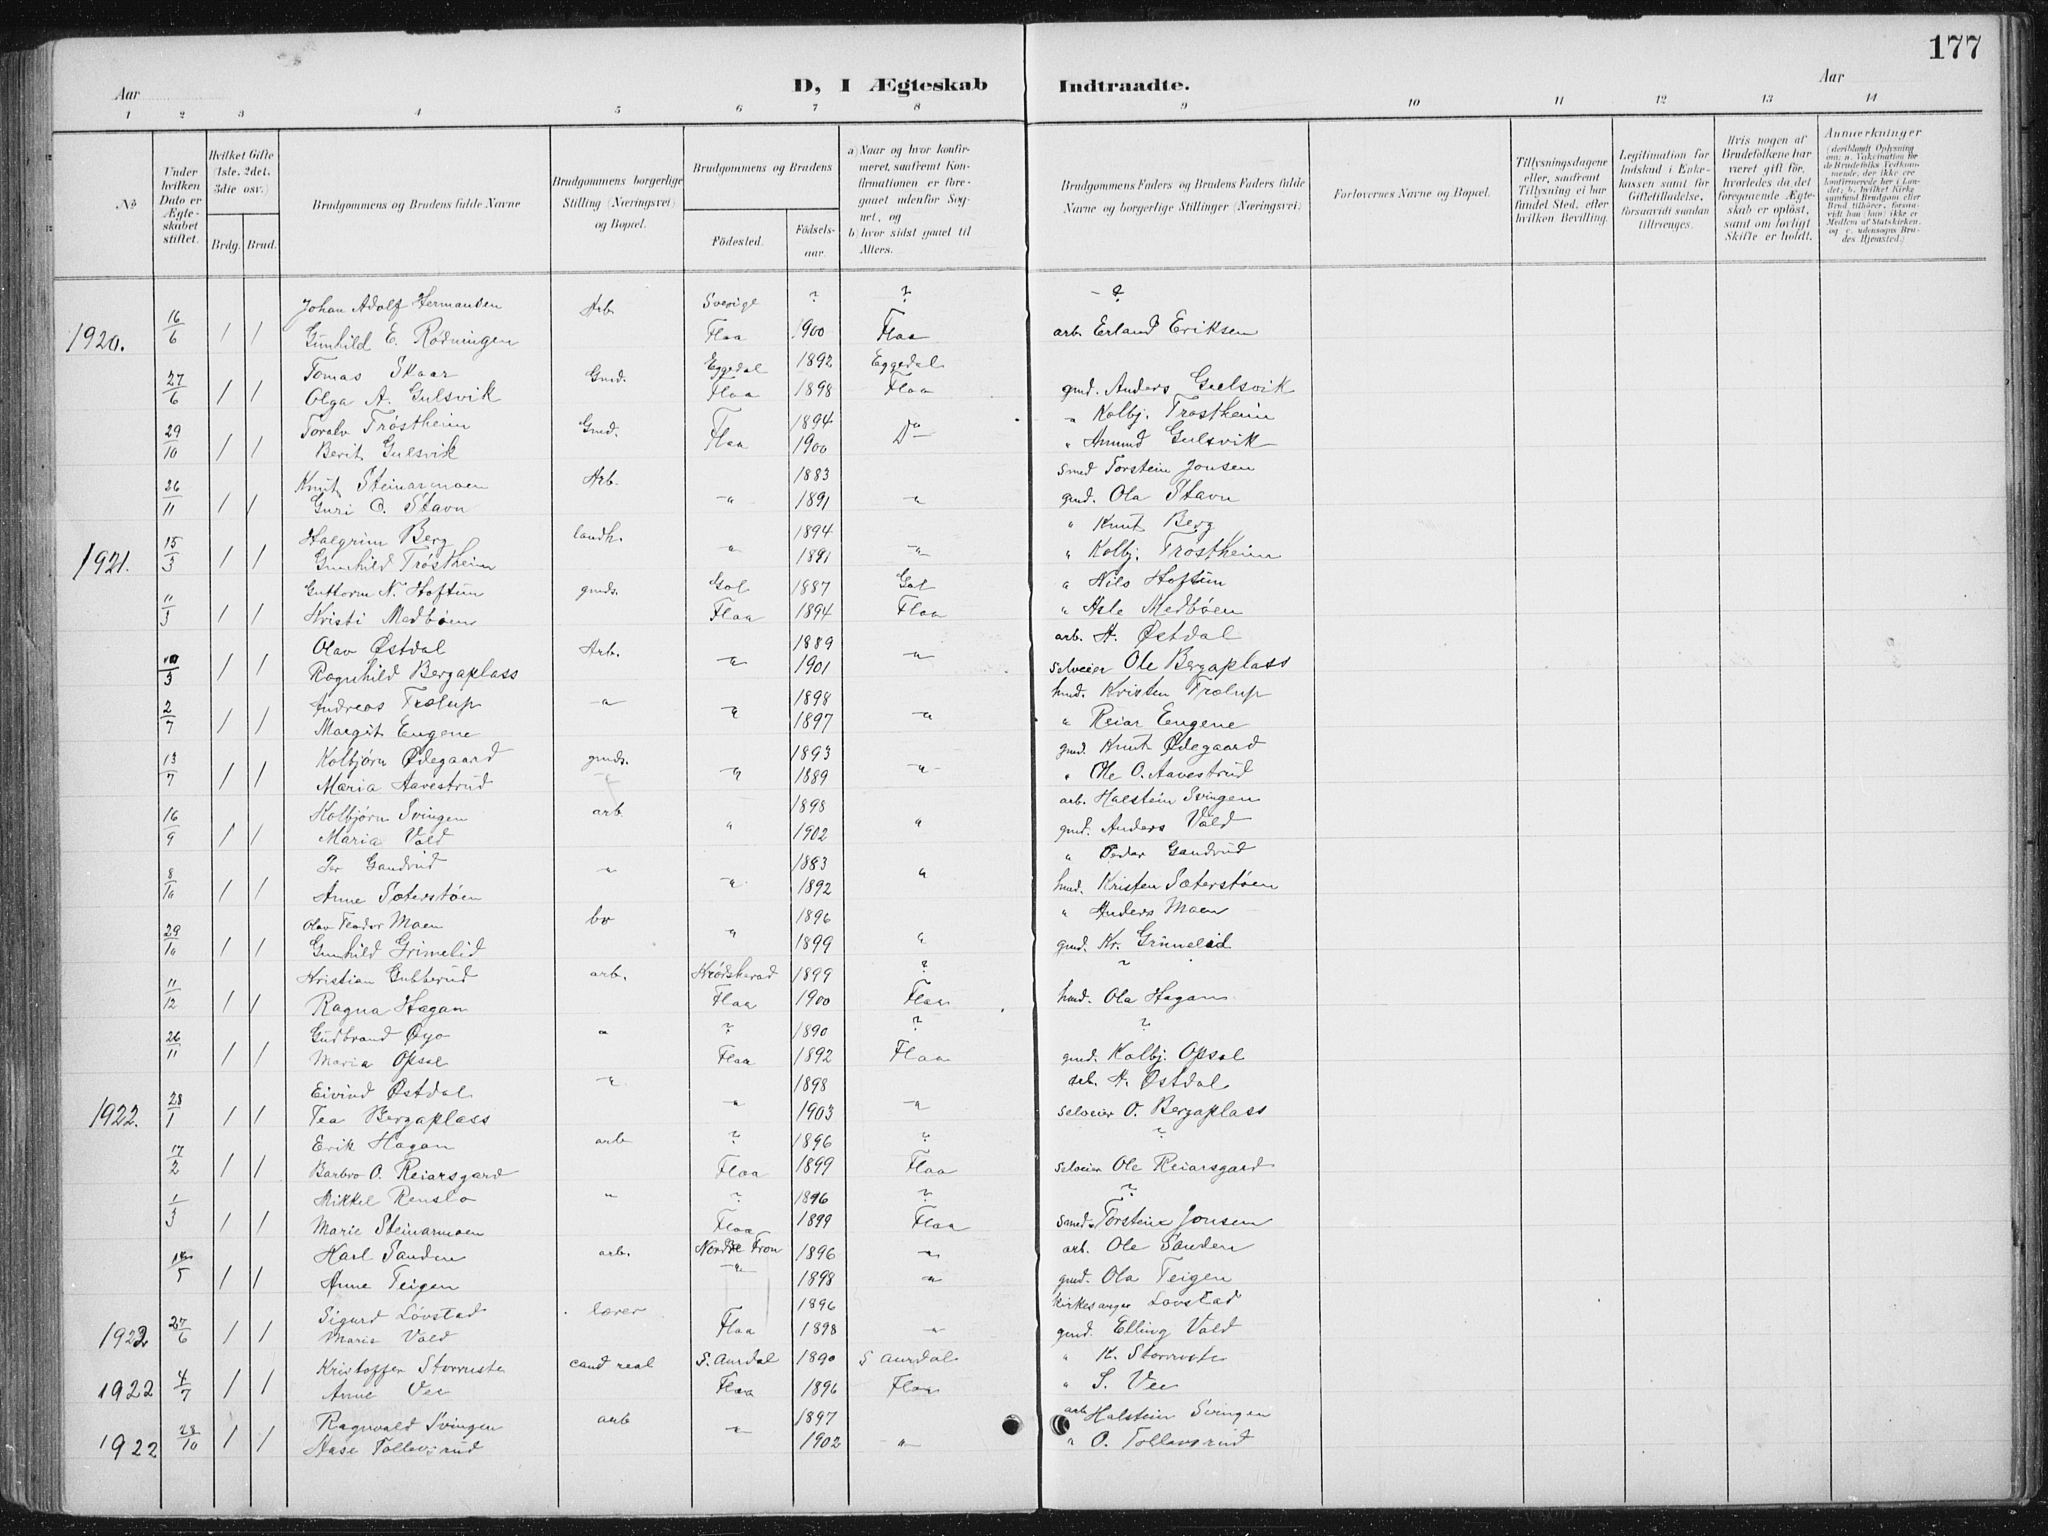 177
D, I Ægteskab Indtraadte.
Aar Aar
1 2 3 4 5 6 7 8 9 10 11 12 13 14
No
Under hvilken Dato er Ægteskabet stiftet.
Hvilket Gifte (1ste, 2det, 3die osv.)
Brdg. Brud.
Brudgommens og Brudens fulde Navne
Brudgommens borgerlige Stilling (Næringsvei) og Bopæl.
Brudgommens og Brudens
Fødested. Fødselsaar.
a) Naar og hvor konfirmeret, saafremt Konfirmationen er foregaaet udenfor Sognet, og
b) hvor sidst gaaet til Alters.
Brudgommens Faders og Brudens Faders fulde Navne og borgerlige Stillinger (Næringsvei)
Forlovernes Navne og Bopæl.
Tillysningsdagene eller, saafremt Tillysning ei har fundet Sted, efter hvilken Bevilling.
Legitimation for Indskud i Enkekassen samt for Giftetilladelse, forsaavidt saadan tiltrænges.
Hvis nogen af Brudefolkene har været gift før, hvorledes da det foregaaende Ægteskab er opløst, samt om lovligt Skifte er holdt.
Anmerkninger
Johan Adolf Hermansen Arb. Sverige ? ? - ?
1920. 16/6 1 1 Gunhild E. Rødningen Flaa 1900 Flaa arb. Erland Eriksen
Tomas Skaar Gmd. Eggedal 1892 Eggedal
27/6 1 1 Olga A. Gulsvik Flaa 1898 Flaa gmd. Anders Gulsvik
Toralv Trøstheim Gmd. Flaa 1894 Do " Kolbj. Trøstheim
29/10 1 1 Berit Gulsvik Flaa 1900 " Amund Gulsvik
Knut Steinarmoen Arb. 1883 smed Torstein Jonsen
26/11 1 1 Guri O. Stavn " 1891 " gmd. Ola Stavn
Halgrim Berg landh. 1894 " Knut Berg
1921. 15/3 1 1 Gunhild Trøstheim " 1891 " " Kolbj. Trøstheim
Guttorm N. Hoftun gmds. Gol 1887 Gol " Nils Hoftun
11/3 1 1 Kristi Medbøen Flaa 1894 Flaa " Asle Medbøen
Olav Østdal Arb. 1889 arb. H. Østdal
/3 1 1 Ragnhild Bergaplass " 1901 " selveier Ole Bergaplass
Andreas Trolup " 1898 hmd. Kristen Trolup
2/7 1 1 Margit Engene " 1897 " " Reiar Engene
Kolbjørn Ødegaard gmds. 1893 gmd. Knut Ødegaard
13/7 1 1 Maria Aavestrud " 1889 " " Ole O. Aavestrud
Kolbjørn Svingen arb. 1898 arb. Halstein Svingen
16/9 1 1 Maria Vold " 1902 " gmd. Anders Vold
Per Gandrud " 1883 " Peder Gandrud
8/10 1 1 Anne Sæterstøen " 1892 " hmd. Kristen Sæterstøen
Olav Teodor Moen 1896 " Anders Moen
29/10 1 1 Gunhild Grimelid " 1899 " gmd. Kr. Grimelid
Kristian Gulterud arb. Krødsherad 1899 ? "
11/12 1 1 Ragna Hagan Flaa 1900 Flaa hmd. Ola Hagan
Gudbrand Øyo " ? 1890 ? ?
26/11 1 1 Maria Opsal Flaa 1892 Flaa gmd. Kolbj. Opsal
Eivind Østdal " 1898 arb. H. Østdal
1922. 28/1 1 1 Tea Bergaplass " 1903 " selveier O. Bergaplass
Erik Hagan arb ? 1896 ? ?
17/2 1 1 Barbro O. Reiarsgard Flaa 1899 Flaa selveier Ole Reiarsgard
Mikkel Renslo " ? 1896 ? ?
1/3 1 1 Marie Steinarmoen Flaa 1899 Flaa smed Torstein Jonsen
Karl Sanden arb. Nordre Fron 1896 " arb. Ole Sanden
/5 1 1 Anne Teigen " 1898 " gmd. Ola Teigen
Sigurd Lövstad lærer 1896 kirkesanger Lovstad
1922 27/6 1 1 Marie Vold Flaa 1898 " gmd. Elling Vold
Kristoffer Storruste cand real S. Aurdal 1890 S Aurdal " K. Storruste
1922 4/7 1 1 Anne Vee Flaa 1896 Flaa " S. Vee
Ragnvald Svingen arb 1897 arb Halstein Svingen
1922 28/10 1 1 Aase Tollevsrud " 1902 " " O. Tollevsrud